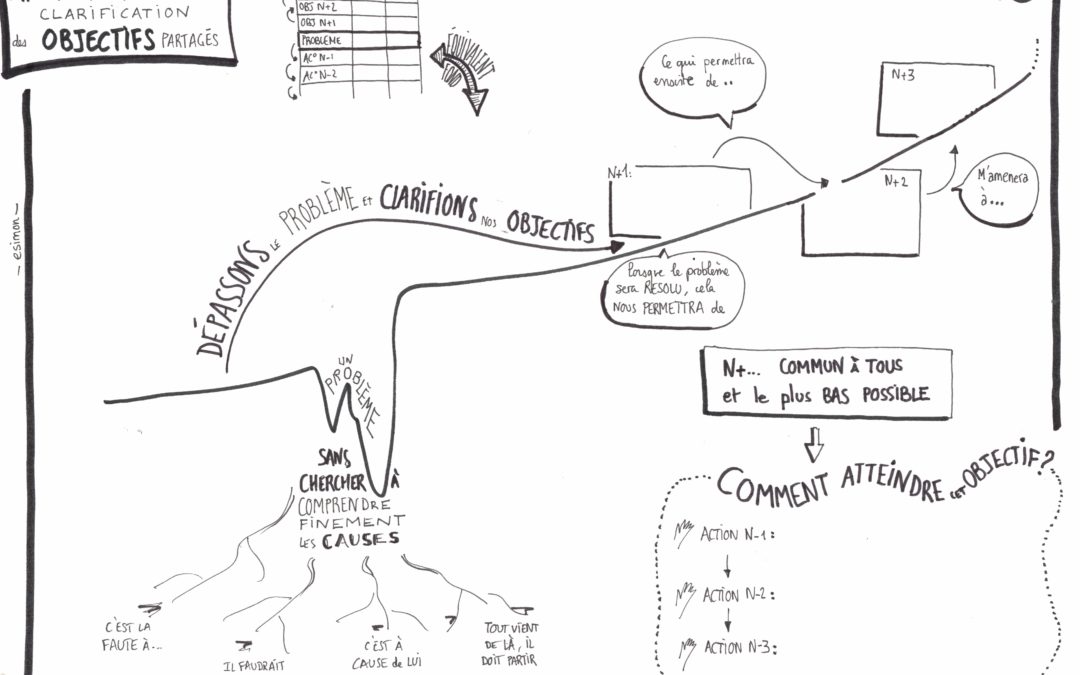 CLARIFICATION
des OBJECTIFS PARTAGÉS
OBJ N+2
OBJ N+1
PROBLÈME
AC° N-1
AC° N-2
ÉQUIVALENT
Ce qui permettra
ensuite de..
N+3
N+1:
N+2
M'amènera
à...
DÉPASSONS LE PROBLÈME ET CLARIFIONS NOS OBJECTIFS
Lorsque le problème
sera RESOLU, cela
NOUS PERMETTRA de
UN
PROBLÈME
N+... COMMUN À TOUS
et le plus BAS POSSIBLE
SANS
CHERCHER À
COMPRENDRE
FINEMENT
LES CAUSES
COMMENT ATTEINDRE CET OBJECTIF?
ACTION N-1:
ACTION N-2:
ACTION N-3:
C'EST LA
FAUTE À...
IL FAUDRAIT
C'EST À
CAUSE de LUI
TOUT VIENT
DE LÀ, IL
DOIT PARTIR
— esimon —